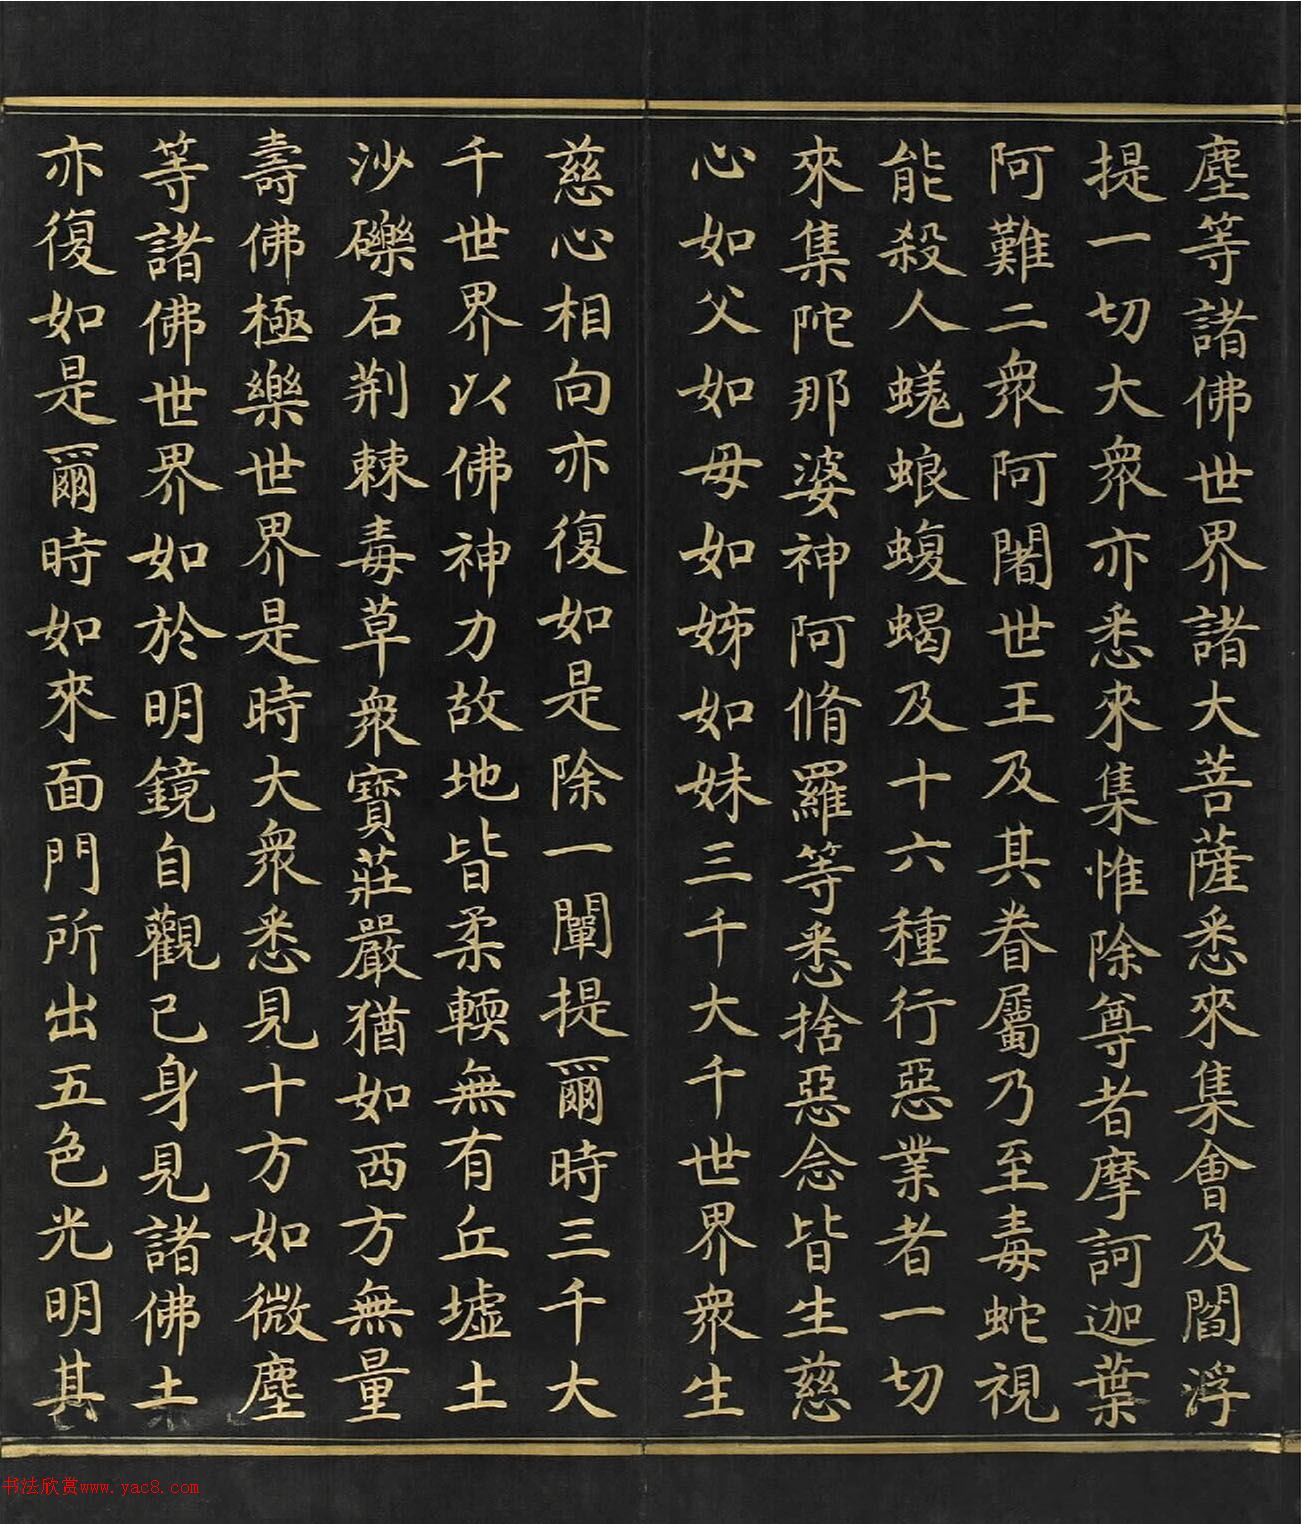 塵等諸佛世界諸大菩薩悉來集會及閻浮
提一切大衆亦悉來集惟除尊者摩訶迦葉
阿難二衆阿闍世王及其眷屬乃至毒蛇視
能殺人蜣蜋蝮蝎及十六種行惡業者一切
來集陀那婆神阿脩羅等悉捨惡念皆生慈
心如父如母如姊如妹三千大千世界衆生
慈心相向亦復如是除一闡提爾時三千大
千世界以佛神力故地皆柔輭無有丘墟土
沙礫石荆棘毒草衆寶莊嚴猶如西方無量
壽佛極樂世界是時大衆悉見十方如微塵
等諸佛世界如於明鏡自觀已身見諸佛土
亦復如是爾時如來面門所出五色光明其
书法欣赏www.yac8.com